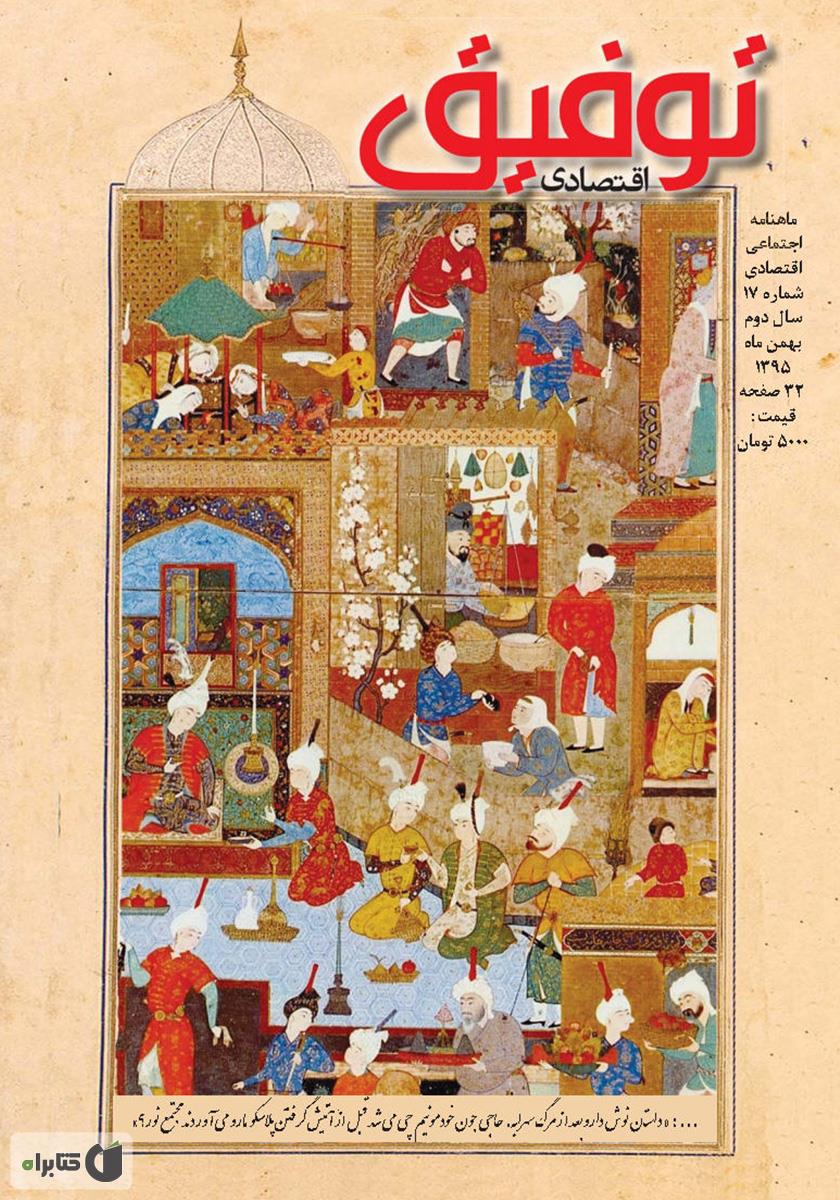 توفیق
اقتصادی
ماهنامه
اجتماعی
اقتصادی
شماره ۱۷
سال دوم
بهمن ماه
۱۳۹۵
۳۲ صفحه
قیمت:
۵۰۰۰ تومان
...: «داستان نوش دارو بعد از مرگ سهرابه، حاجی جون خودمونیم چی می شد قبل از آتیش گرفتن پلاسکو مارو می آوردند مجتمع نور؟»
کتابراه